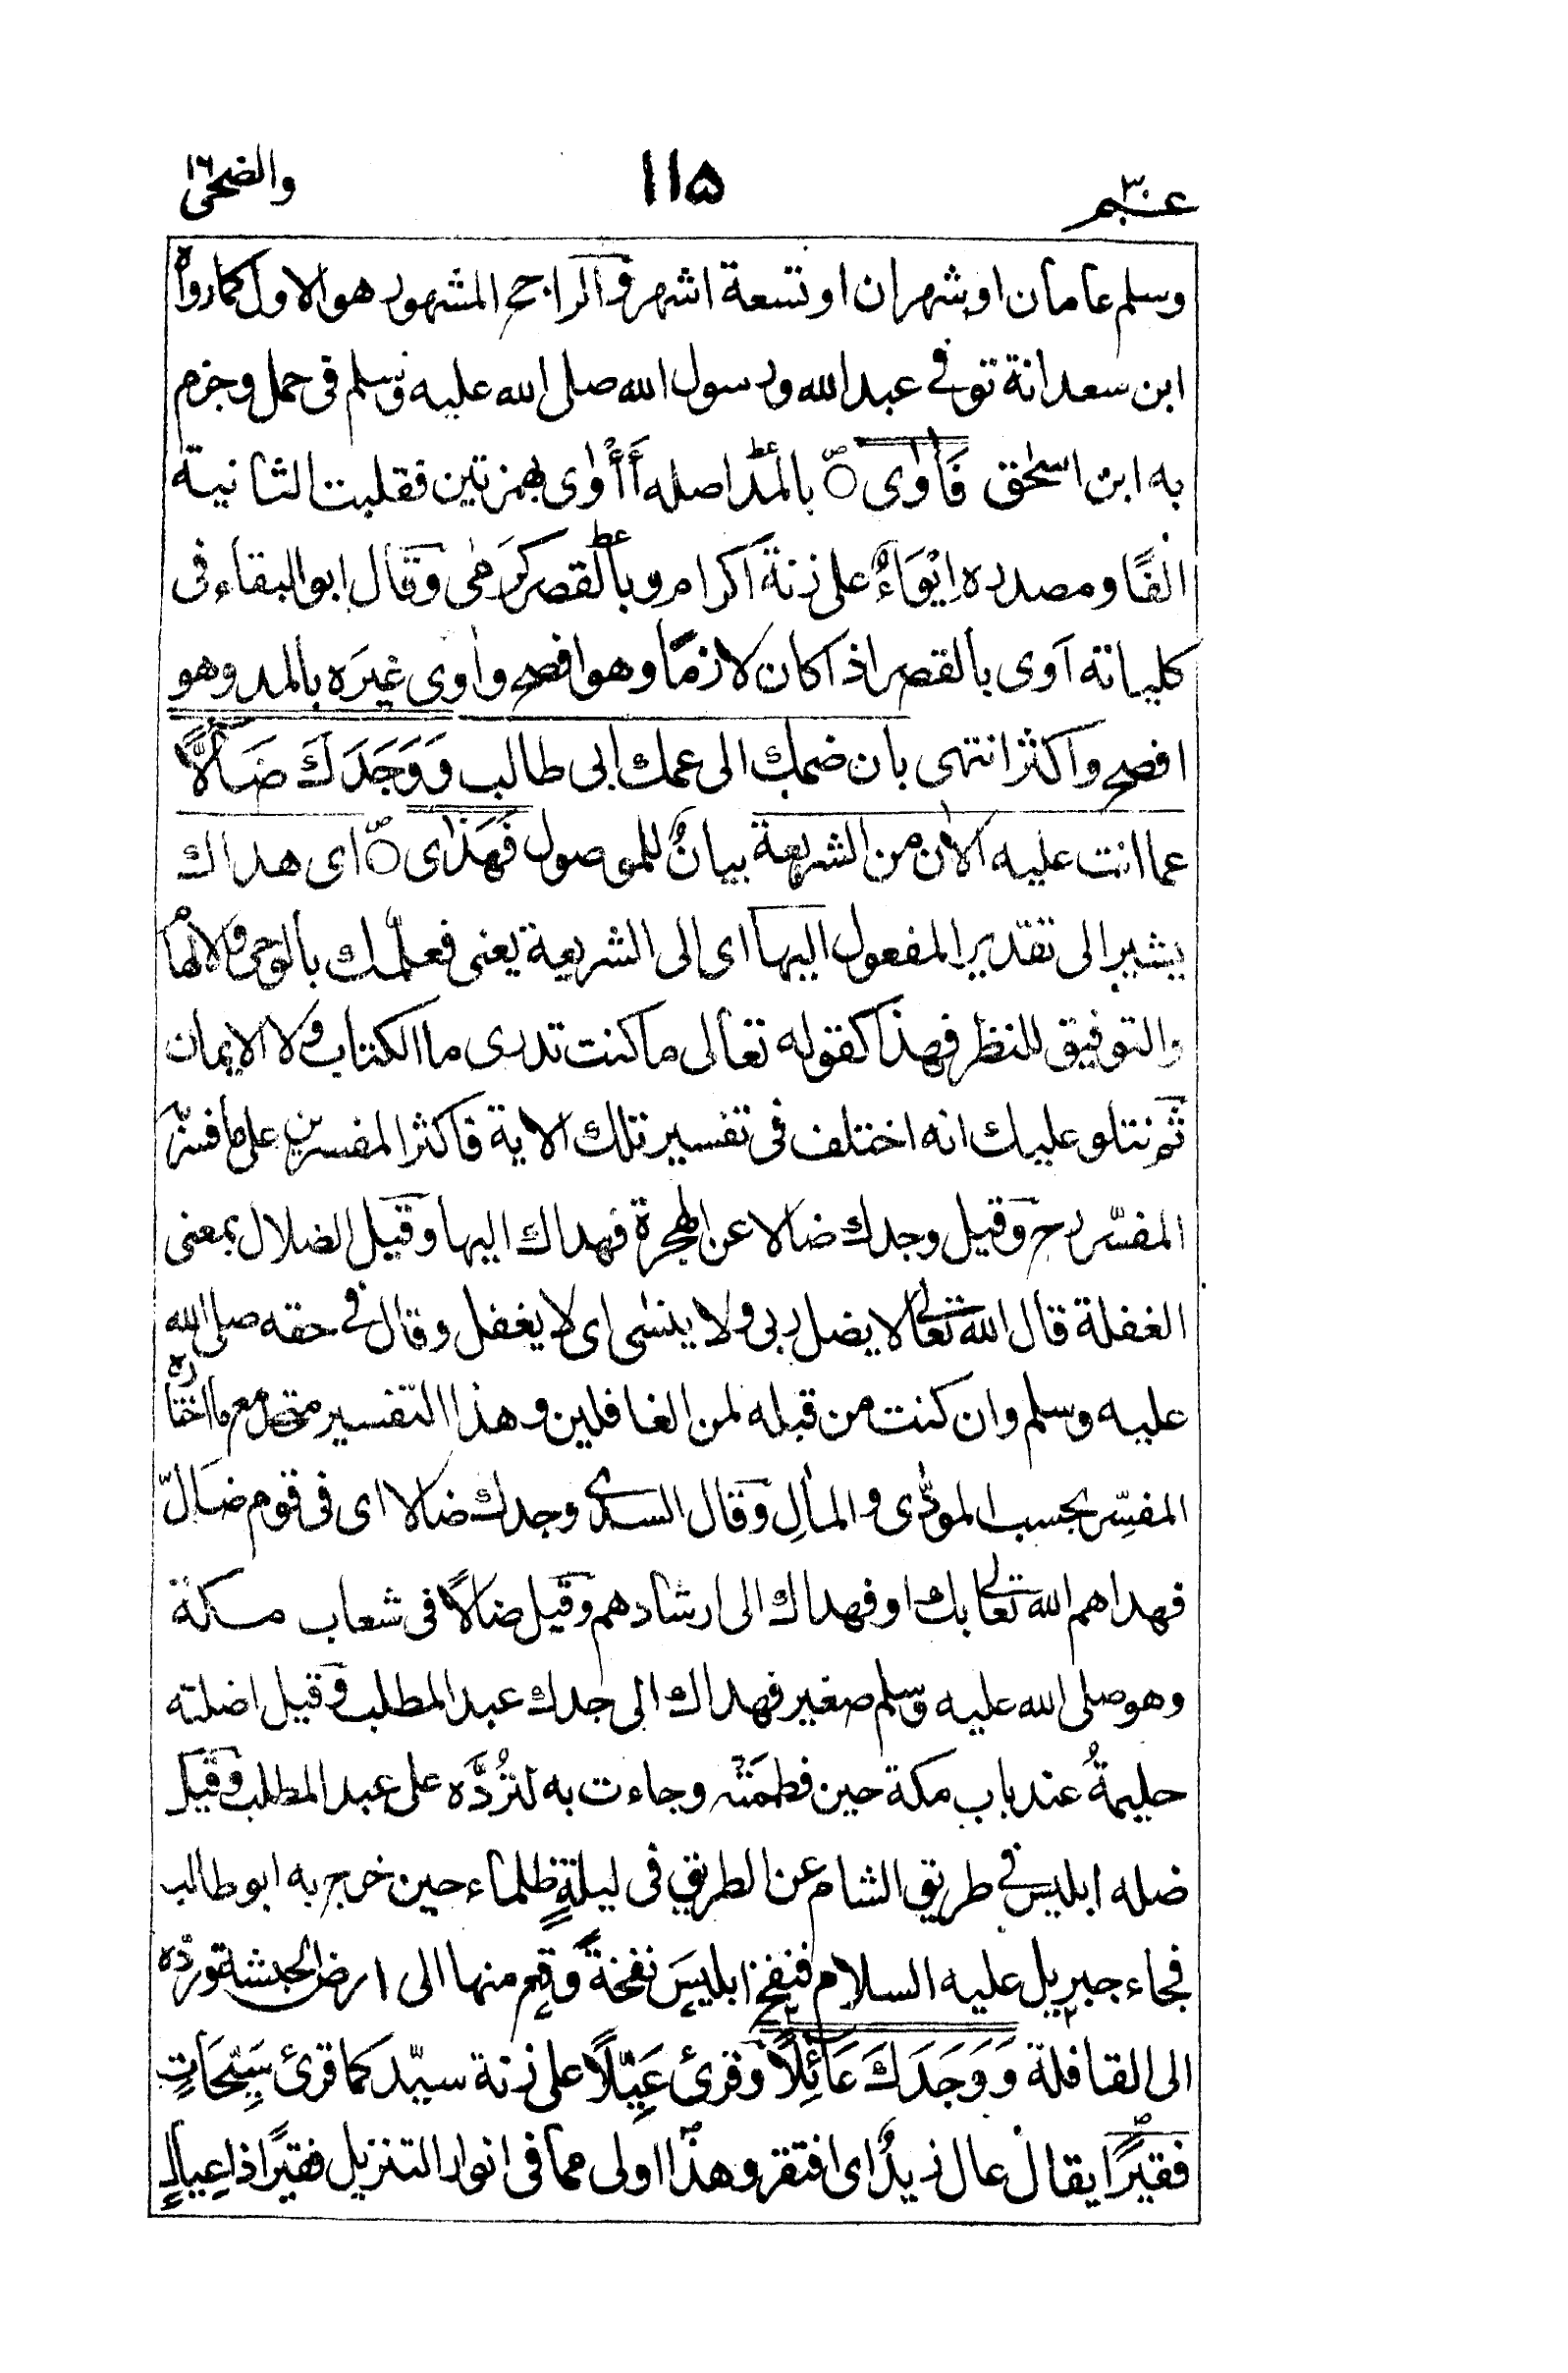 عـم ٣٠
١١٥
والضحى ١٦
وسلم عامان او شهران او تسعة اشهر والراجح المشهور هو الاول كما رواه
ابن سعد انة توفى عبد الله ورسول الله صلى الله عليه وسلم فى حمل وجزم
به ابن اسحٰق فَاٰوٰى بالمد اصله أَأْوٰى بهمزتين فقلبت الثانية
الفًا ومصدره اِيْوَاءٌ على زنة اكرام وبالقصر كَرَمٰى وقال ابو البقاء فى
كلياته آوى بالقصر اذا كان لازمًا وهو افصح واٰوى غيرَه بالمد وهو
افصح واكثر انتهى بان ضمك الى عمك ابى طالب وَوَجَدَكَ ضَآلًّا
عما انت عليه الاٰن من الشريعة بيانٌ للموصول فَهَدٰى اى هداك
يشير الى تقدير المفعول اليها اى الى الشريعة يعنى فعلّمك بالوحى والالهام
والتوفيق للنظر فهذا كقوله تعالى ما كنت تدرى ما الكتاب ولا الايمان
ثم نتلو عليك انه اختلف فى تفسير تلك الاية فاكثر المفسرين على ما فسّر
المفسّر رح وقيل وجدك ضالا عن الهجرة فهداك اليها وقيل الضلال بمعنى
الغفلة قال الله تعالى لا يضل ربى ولا ينسٰى اى لا يغفل وقال فى حقه صلى الله
عليه وسلم وان كنت من قبله لمن الغافلين وهذا التفسير متحد مع ما اختاره
المفسّر بحسب المؤدّى والمآلِ وقال السدى وجدك ضالا اى فى قوم ضَالّ
فهداهم الله تعالى بك او فهداك الى ارشادهم وقيل ضالًا فى شعاب مكة
وهو صلى الله عليه وسلم صغير فهداك الى جدك عبد المطلب وقيل اضلته
حليمةُ عند باب مكة حين فطمَتْه وجاءت به لتَرُدَّه على عبد المطلب وقيل
ضله ابليس فى طريق الشام عن الطريق فى ليلةٍ ظلماء حين خرج به ابو طالب
فجاء جبريل عليه السلام فنفخ ابليسَ نفخةً وقع منها الى ارض الحبشة وردّه
الى القافلة وَوَجَدَكَ عَآئِلًا وقرئ عَيِّلًا على زنة سيّد كما قرئ سَيِّحَاتٍ
فقيرًا يقال عال زيدٌ اى افتقر وهذا اولى مما فى انوار التنزيل فقيرًا ذا عيالٍ